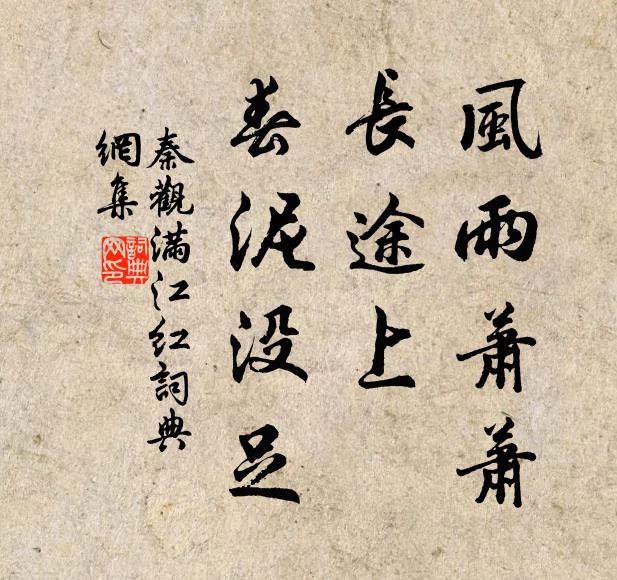 風雨蕭蕭
長途上
春泥没足
秦觀滿江红詞典
網集
詞典
网印